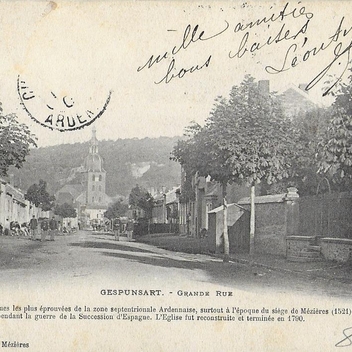 mille amitiés
bons baisers
Léontine
ARDEN
GESPUNSART. - GRANDE RUE
ues les plus éprouvées de la zone septentrionale Ardennaise, surtout à l'époque du siège de Mézières (1521)
pendant la guerre de la Succession d'Espagne. L'Eglise fut reconstruite et terminée en 1790.
Mézières